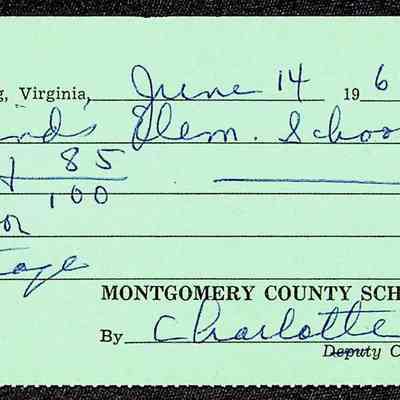 g, Virginia, June 14 196
nds Elem. Schoo
85
100
or
MONTGOMERY COUNTY SCH
By Charlotte
Deputy C